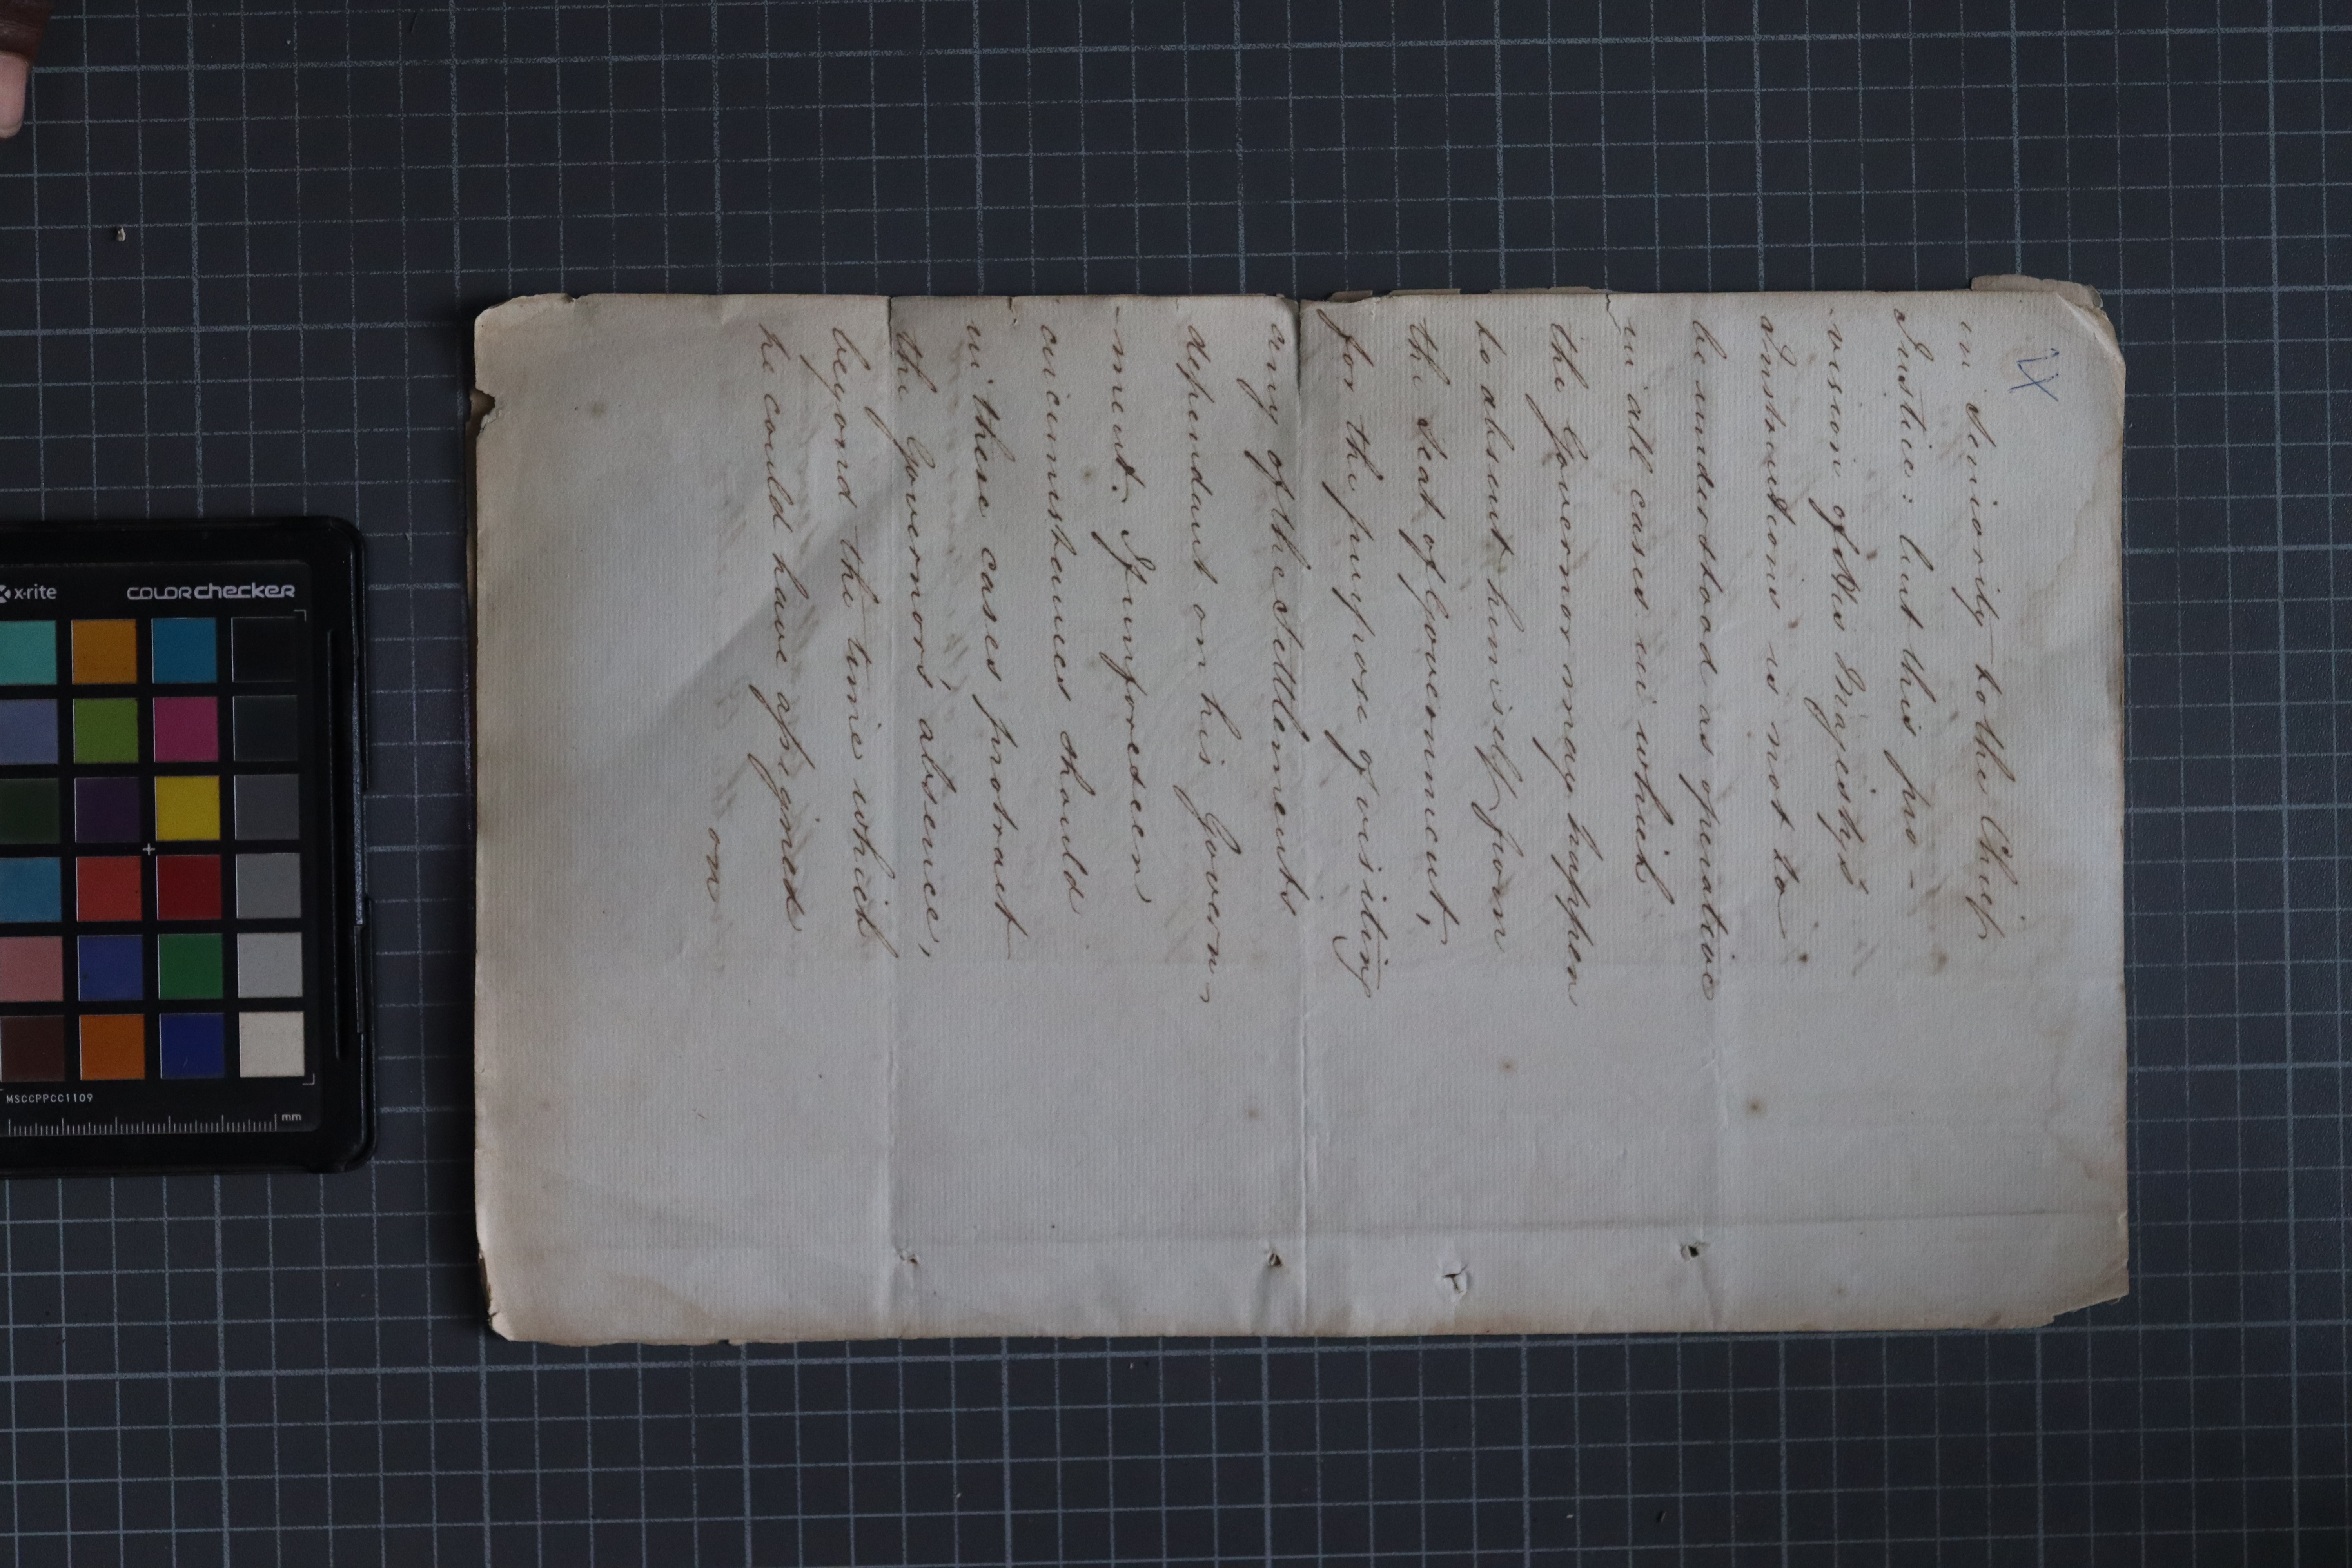 in Seniority to the Chief
Justice: but this pro-
-vision of Her Majesty's
Instructions is not to
be understood as operative
in all cases in which
the Governor may happen
to absent himself from
the Seat of Government,
for the purpose of visiting
any of the Settlements
dependant on his Govern-
-ment. If unforeseen
circumstances should
in these cases protract
the Governors' absence,
beyond the time which
he could have assigned
on
x-rite
COLORchecker
MSCCPPCC1109
mm